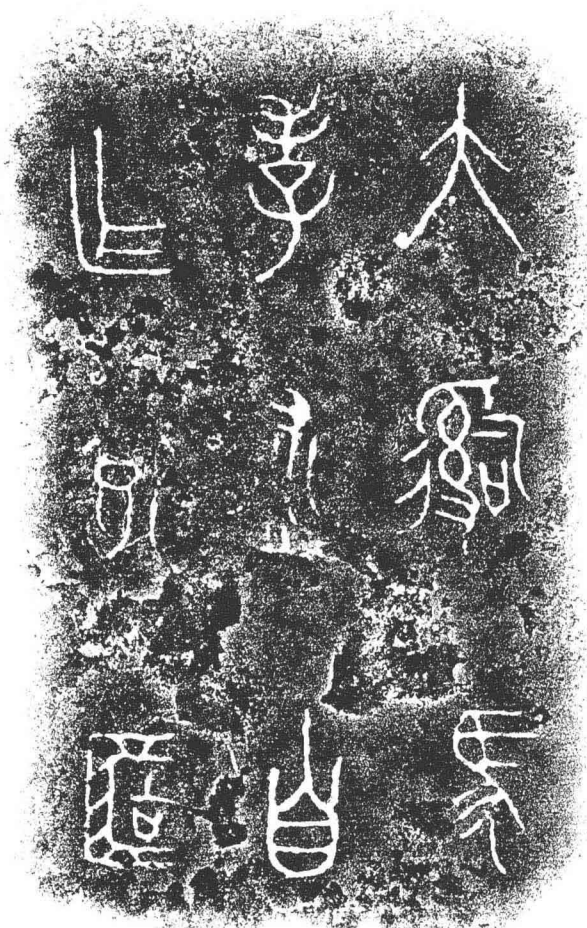 大司馬
孛朮自
乍飤簠